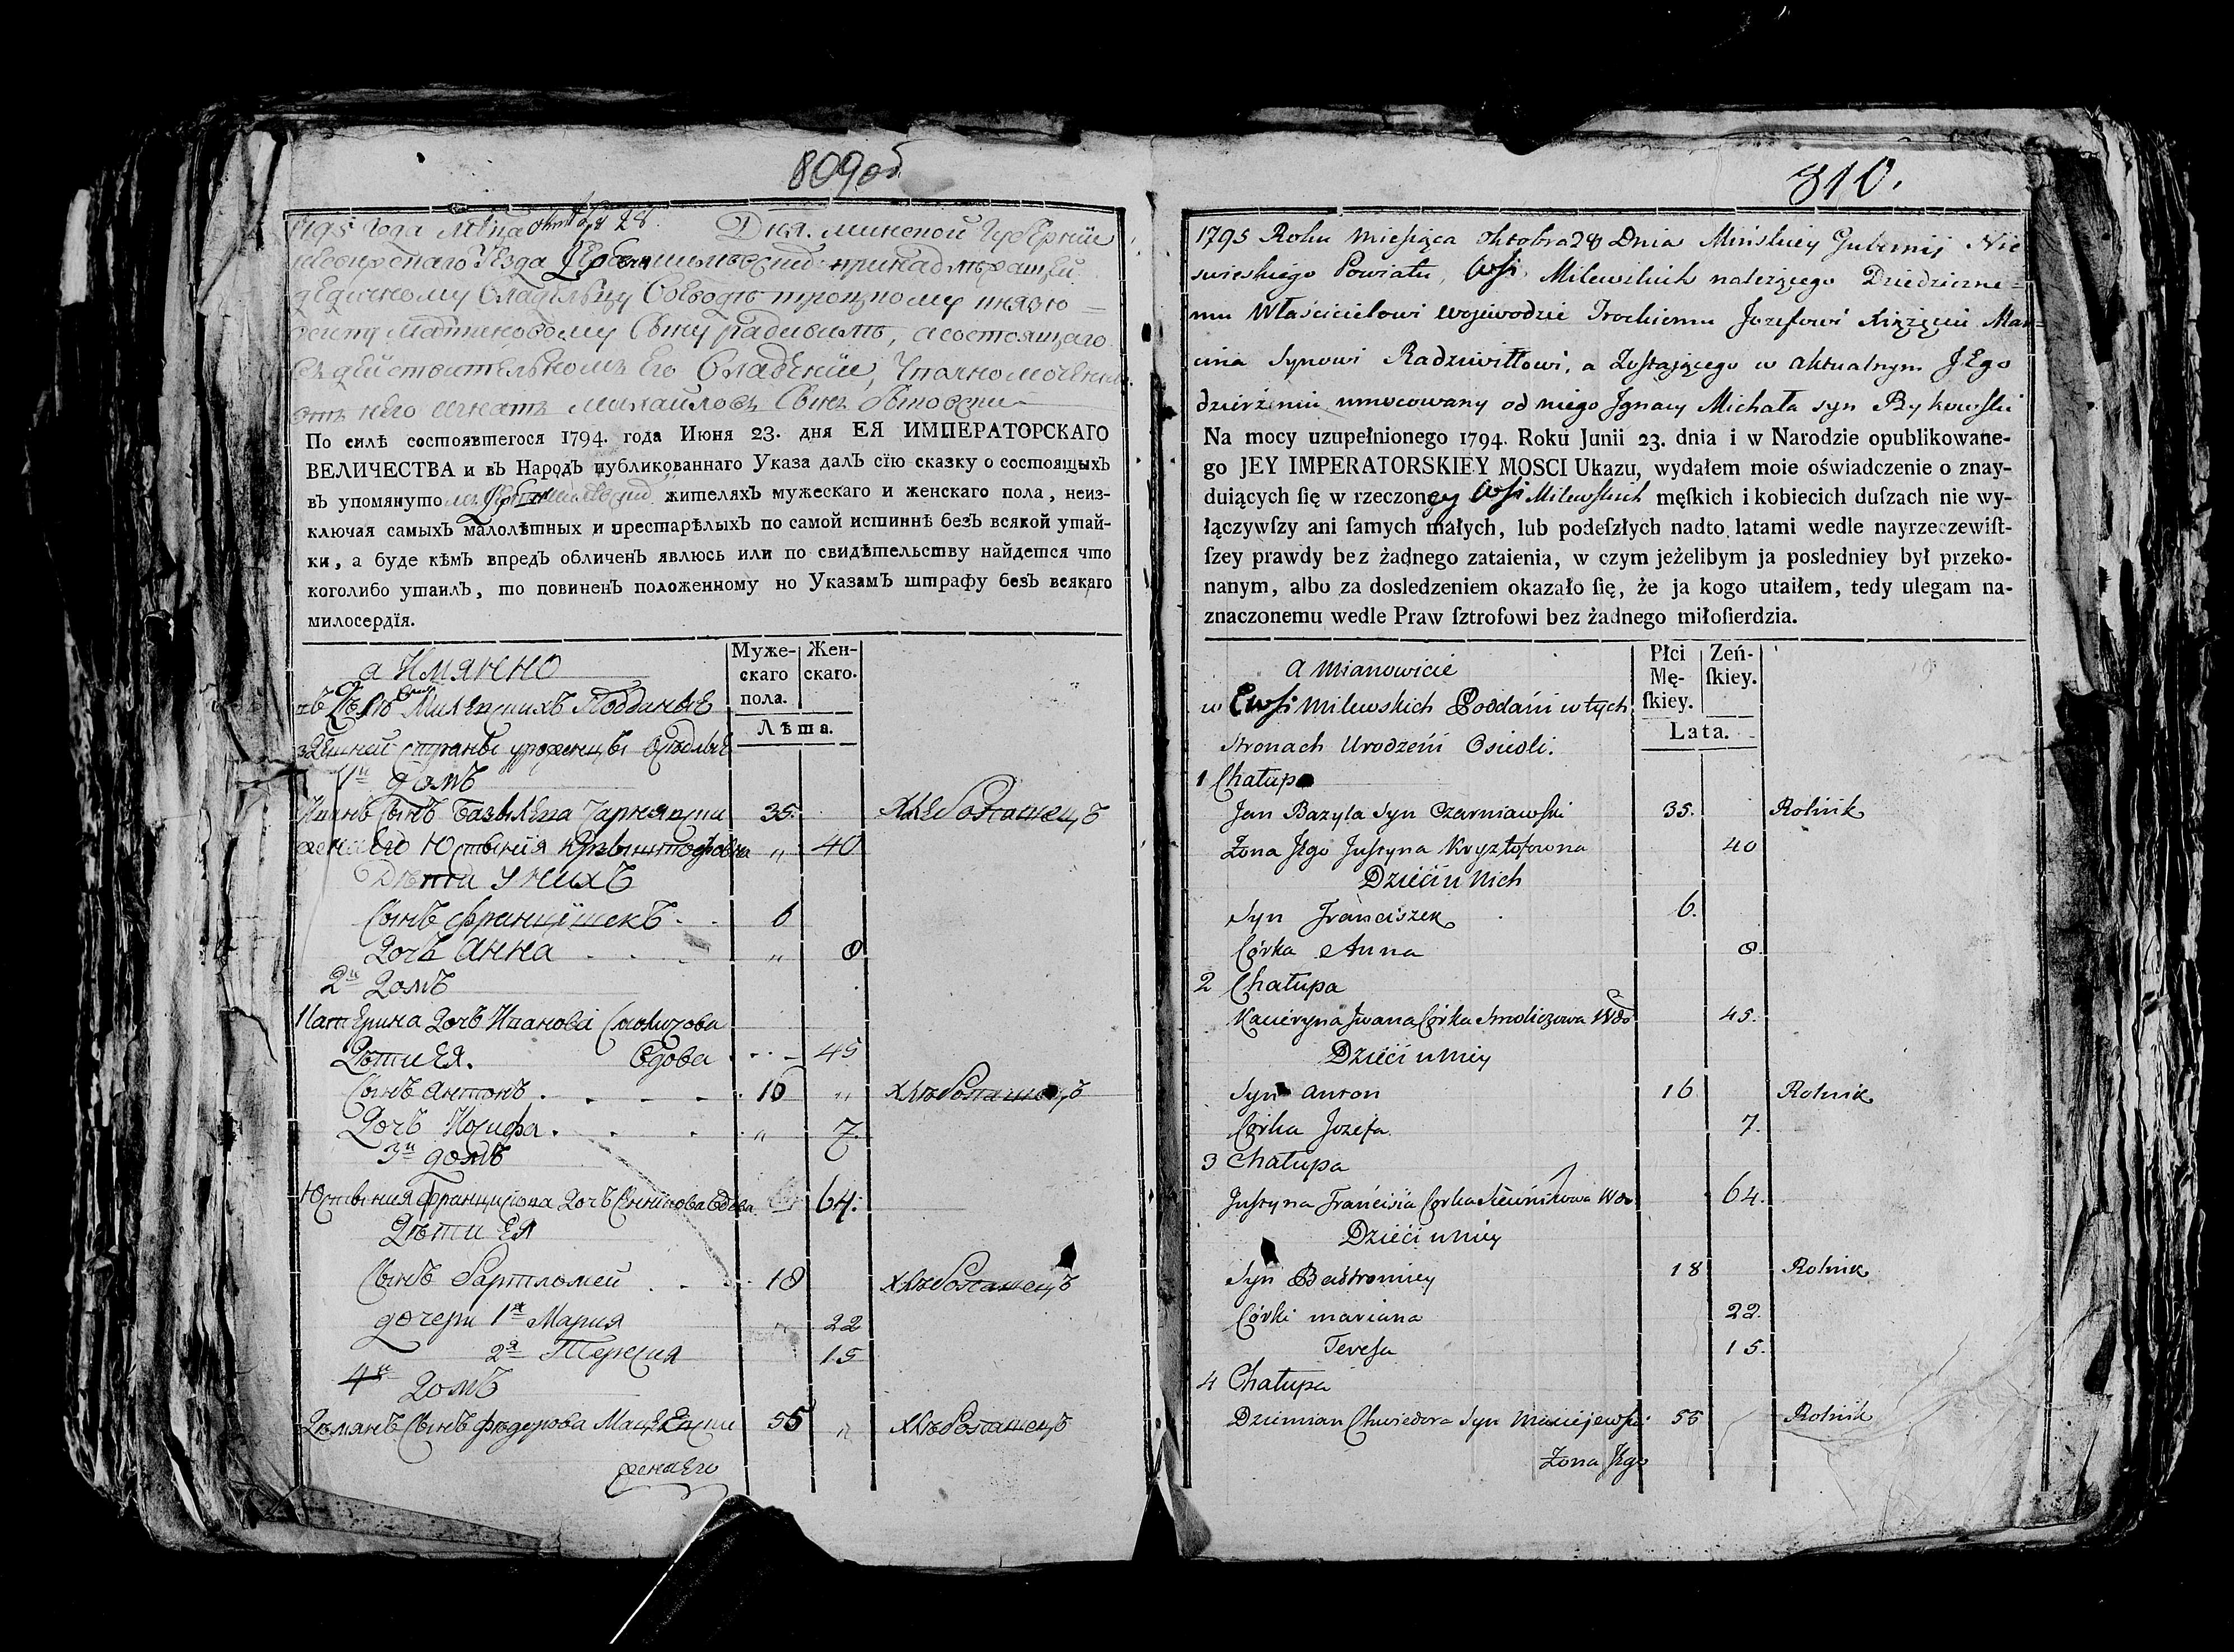 809 об
1795 Года Мѣсяца октября 28 Дня. Минской Губернїи
Несвижскаго Уезда принадлежащей
дедичному Владельцу Воеводѣ троцкому князю
Мартиновому Сыну радивилѣ, а состоящаго
въ действительномъ Его Владенїи, Уполномоченны
отъ него игнатъ михайловъ Сынъ Быковски
По силѣ состоявшегося 1794. года Июня 23. дня ЕЯ ИМПЕРАТОРСКАГО
ВЕЛИЧЕСТВА и въ Народъ публикованнаго Указа далъ сїю сказку о состоящыхъ
въ упомянуто жителяхъ мужескаго и женскаго пола, неиз-
ключая самыхъ малолѣтныхъ и престарѣлыхъ по самой истиннѣ безъ всякой утай-
ки, а буде кѣмъ впредъ обличенъ явлюсь или по свидѣтельству найдется что
коголибо утаилъ, то повиненъ положенному по Указамъ штрафу безъ всякаго
милосердїя.
а Имянно
Муже-
скаго
пола.
Жен-
скаго.
Лѣта.
Милевскихъ Подданые
здешней страны уроженцы оседлые
1й домъ
Иванъ Сынъ Базылева Чарнявски 35. Хлебопашецъ
жена Его Юстыния Крыштофовна " 40
Дети у нихъ
Сынъ францишекъ 6
Дочь Анна " 8
2й домъ
Катерина Дочь Иванова Смоличова
Дѣти Ея. Вдова 45
Сынъ антонъ 16 " Хлѣбопашецъ
Дочь Иосифа " 7.
3й домъ
Юстыния францискова Дочь Вдова 64.
Дѣти Ея
Сынъ бартломей 18 Хлѣбопашецъ
дочери 1я Мария " 22
2я Терезия 15
4й домъ
Дѣмянъ Сынъ Федорова Мацеевски 55 " Хлѣбопашецъ
жена Его
310.
1795 Roku Miesiąca Oktobra 28 Dnia Mińskiey Gubernij Nie
swieskiego Powiatu, Wsi Milewskich należącego Dziedziczne=
mu Właścicielowi Wojewodzie Trockiemu Jozefowi Xiążęciu Mar=
cina Synowi Radziwiłłowi, a Zostającego w aktualnym JEgo
dzierżeniu umocowany od niego Jgnacy Michała syn Bykowski
Na mocy uzupełnionego 1794. Roku Junii 23. dnia i w Narodzie opublikowane-
go JEY IMPERATORSKIEY MOSCI Ukazu, wydałem moie oświadczenie o znay-
duiących ſię w rzeczoney Wsi Milewskich męſkich i kobiecich duſzach nie wy-
łączywſzy ani ſamych małych, lub podeſzłych nadto latami wedle nayrzeczewiſt-
ſzey prawdy bez żadnego zataienia, w czym jeżelibym ja posledniey był przeko-
nanym, albo za dosledzeniem okazało ſię, że ja kogo utaiłem, tedy ulegam na-
znaczonemu wedle Praw ſztrofowi bez żadnego miłoſierdzia.
a mianowicie
Płci
Mę-
ſkiey.
Zeń-
ſkiey.
Lata.
w Wsi Milewskich Poddani w tych
Stronach Urodzeni Osiedli.
1 Chałupa
Jan Bazyla Syn Czarniawski 35. Rolnik
Zona Jego Justyna Krysztofowna 40
Dzieci u Nich
Syn Franciszek 6.
Córka Anna 8.
2 Chałupa
Kacieryna Jwana Córka Smoliczowa Wdo 45.
Dzieci u Niey
Syn Anton 16 Rolnik
Córka Jozefa 7.
3 Chałupa
Justyna Córka Wdo 64.
Dzieci u Niey
Syn Bartłomiey 18 Rolnik
Córki Mariana 22.
Teresa 15.
4 Chałupa
Dziemian Chwiedora Syn Maciejewski 55 Rolnik
Zona Jego